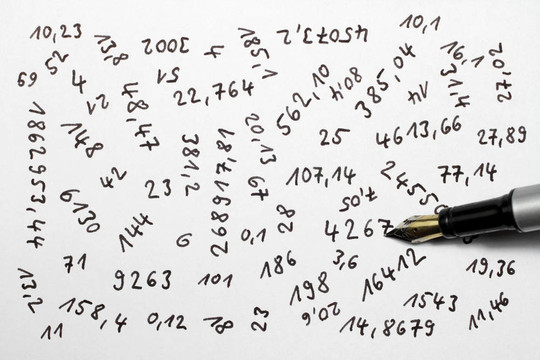 10,23
13,8
3002
4
185,1
45073,2
10,1
52
69
4
21
51
22,764
48,47
562,10
80,4
385,04
14
16,1
31,4
20,72
1862953,44
148
381,2
268917,81
20,13
25
4613,66
27,89
42
23
67
107,14
2455
77,14
6130
144
6
0,1
28
7,05
4267
71
9263
101
186
3,6
16412
19,36
13,2
158,4
0,12
18
23
198
20,6
1543
11,46
11
14,8679